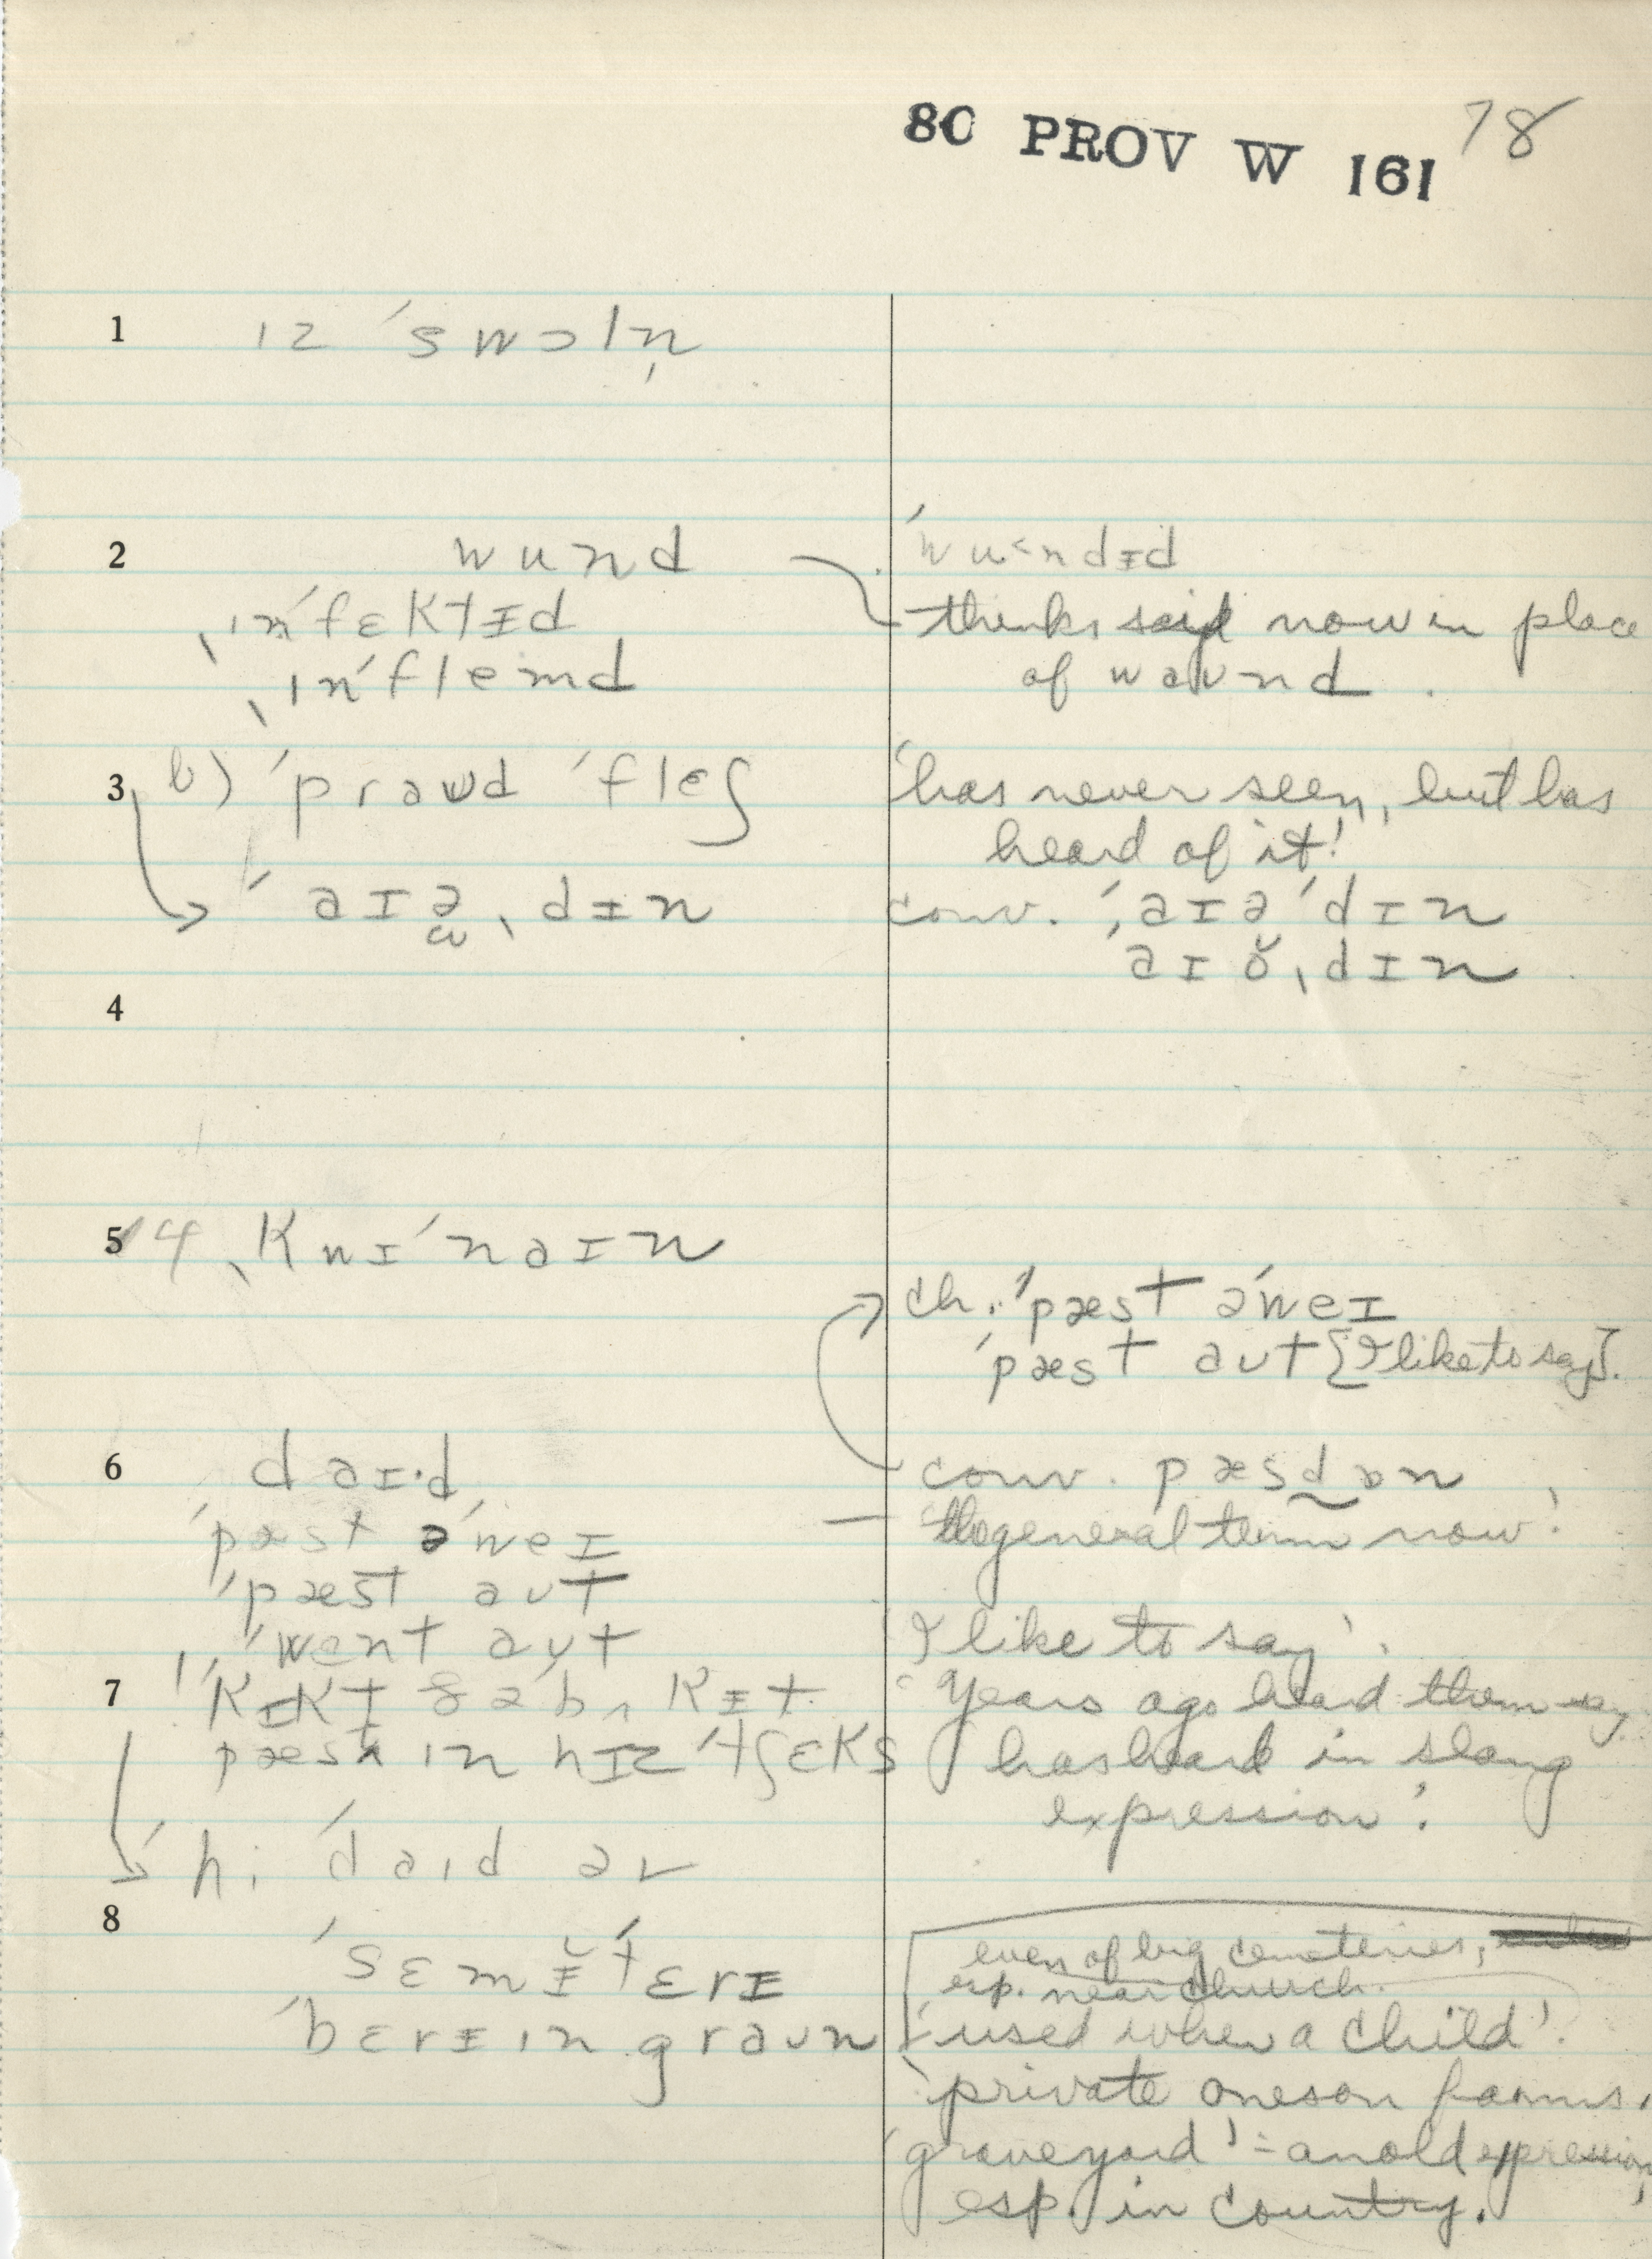 80 PROV W 161 78
1 ɪz ˈswɔln̩
2 wund ˈwu˂ndɪd
ˌɪnˈfɛktɪd thinks said now in place
ˌɪnˈflemd of waʊnd .
3 b) ˈpraʊd ˈflɛʃ 'has never seen, but has
heard of it!'
ˈaɪəˌdɪn conv. ˈˌaɪəˈdɪn
aɪə̆ˌdɪn
4
5 4 ˌkwɪˈnaɪn
ch. ˈpæst əˈweɪ
ˈpæst aʊt [I like to say].
6 daɪ·d conv. pæsd̰ɒn
ˈpæst əˈweɪ — 'the general term now'.
ˈpæst aʊt
ˈwɛnt aʊt I like to say'.
7 ˈkɪkt ðə ˈbʌkɪt 'Years ago heard them say
pæst ɪn hɪz ˈtʃɛks has heard in slang
expression'.
ˈhi ˈdaɪd əv
8
ˈsɛmɪ̆ˈtɛrɪ even of big cemeteries,
esp. near church.
ˈbɛrɪɪn graʊn 'used when a child'.
'private ones on farms.
'graveyard' = an old expression,
esp. in country.